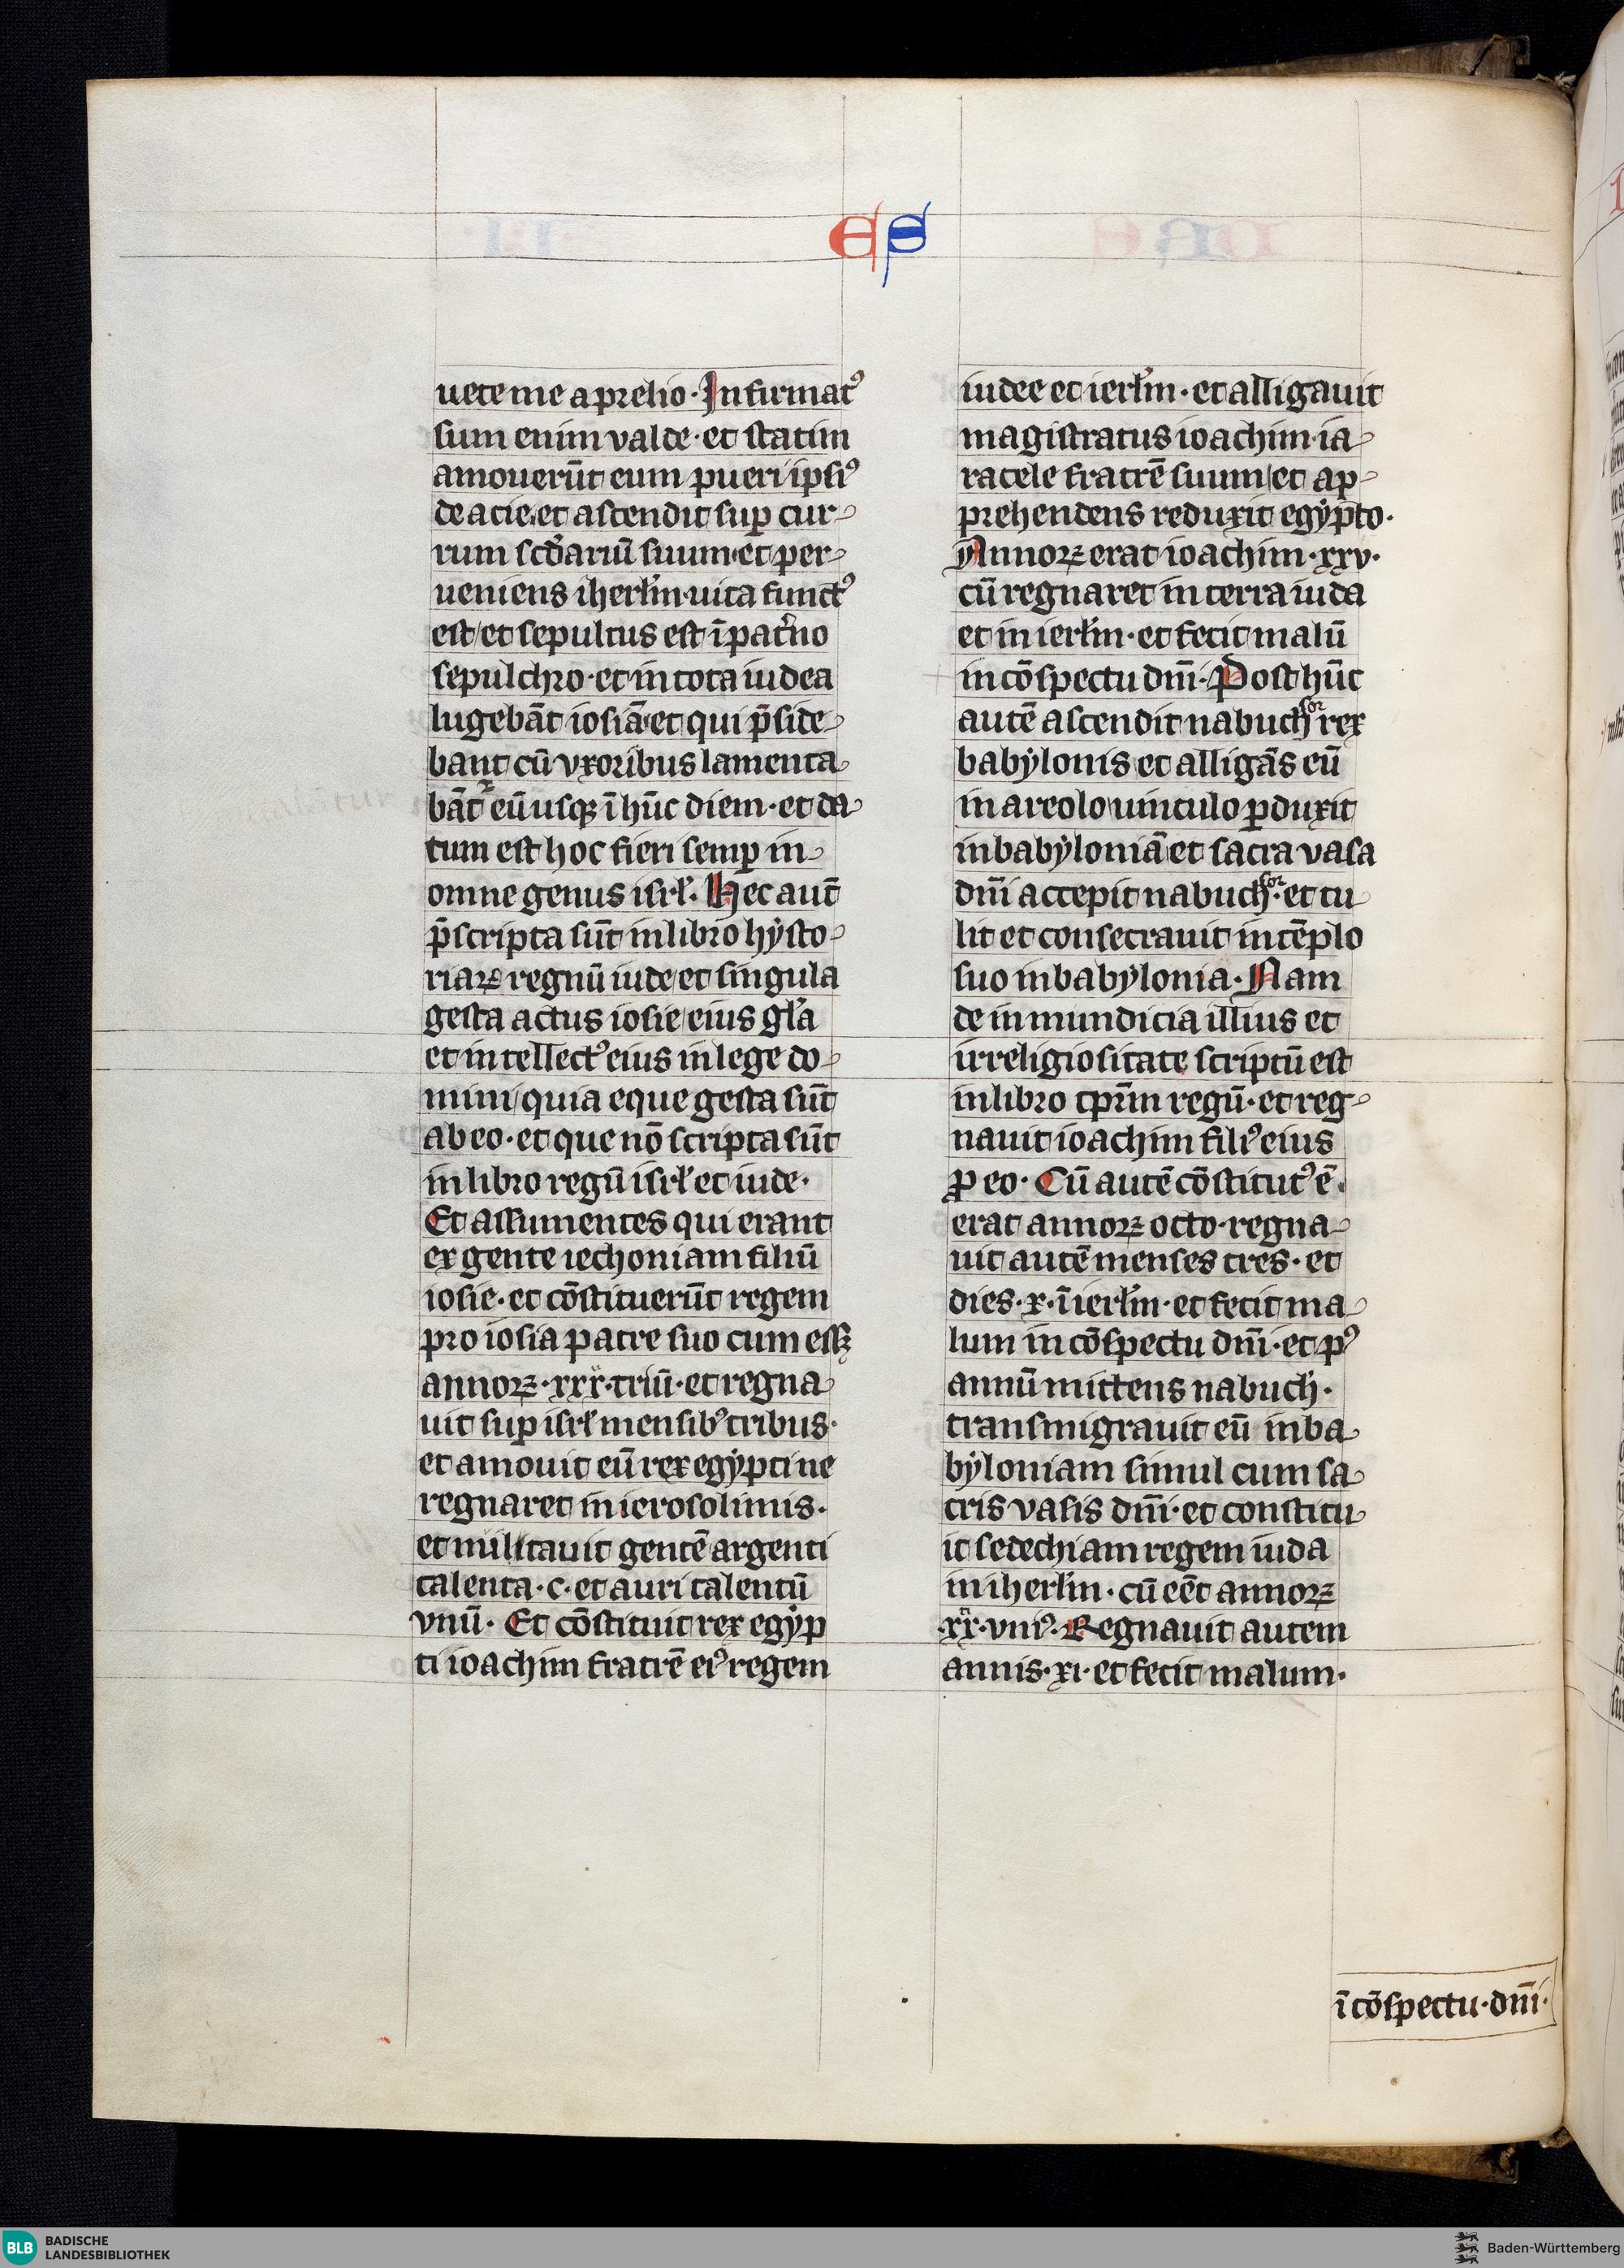 ES
uete me a prelio· Infirmatꝰ
sum enim valde· et statim
amouerūt eum pueri ipsiꝰ
de acie et ascendit sup̱ cur-
rum scd̓ariū suum· et per-
ueniens iherl̄m· uita functꝰ
est/ et sepultus est ī pat̓no
sepulchro· et in tota iudea
lugebāt iosiā et qui p̄side-
bant cū vxoribus lamenta-
bāt᷑ eū usqꝫ ī hūc diem· et da-
tum est hoc fieri semp̱ in-
omne genus isrl̓· Hec aut̄
p̄scripta sūt in libro hẏsto-
riaꝝ regnū iude/ et singula
gesta actus iosie/ eius gl̓a
et intellectꝰ eius in lege do-
mini/ quia eque gesta sūt
ab eo· et que nō scripta sūt
in libro regū isrl̓ et iude·
Et assumentes qui erant
ex gente iechoniam filiū
iosie· et cōstituerūt regem
pro iosia patre suo cum essꝫ
annoꝝ· xxx· triū· et regna-
uit sup̱ isrl̓ mensibꝰ tribus·
et amouit eū rex egẏpti ne
regnaret in ierosolimis·
et militauit gentē argenti
talenta· c· et auri talentū
vnū· Et cōstituit rex egẏp
ti ioachim fratrē eiꝰ regem
iudee et ierl̄m· et alligauit
magistratus ioachim· ia-
racele fratrē suum/ et ap-
prehendens reduxit egẏpto·
Annoꝝ erat ioachim· xxv·
cū regnaret in terra iuda
et in ierl̄m· et fecit malū
in cōspectu dnī· Post hūc
autē ascendit nabuch̓sor rex
babẏlonis et alligās eū
in areolo uinculo ꝑduxit
in babẏloniā et sacra vasa
dnī accepit nabuch̓sor· et tu-
lit et consecrauit in tēplo
suo in babẏlonia· Nam
de inmundicia illius et
irreligiositate scriptū est
in libro tpr̄m regū· et reg-
nauit ioachim filiꝰ eius
ꝓ eo· Cū autē cōstitutꝰ ē·
erat annoꝝ octo· regna-
uit autē menses tres· et
dies· x· ī ierl̄m· et fecit ma-
lum in cōspectu dnī· et pꝰ
annū mittens nabuch̓·
transmigrauit eū in ba-
bẏloniam simul cum sa-
cris vasis dnī· et constitu-
it sedechiam regem iuda
in iherl̄m· cū eēt annoꝝ
·xx· vniꝰ· Regnauit autem
annis· xi· et fecit malum·
ī cōspectu· dnī·
BLB BADISCHE
LANDESBIBLIOTHEK
Baden-Württemberg